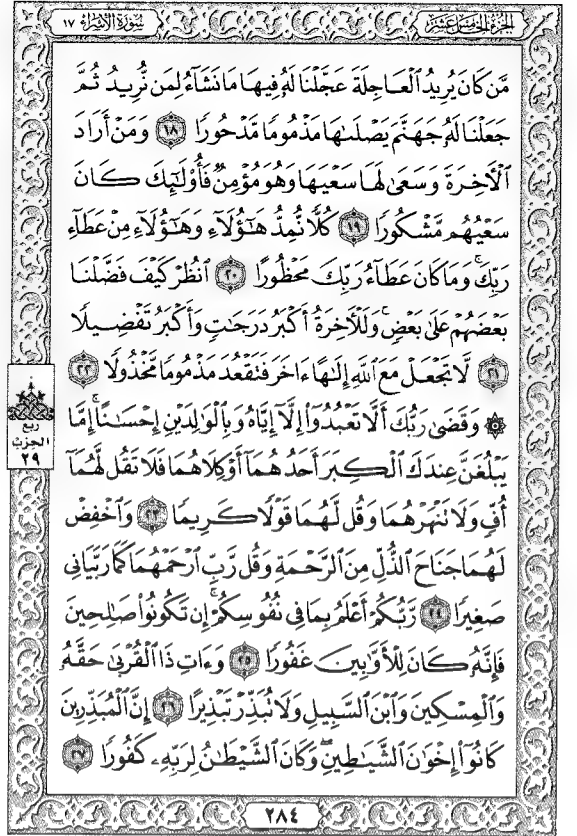 سُورَةُ الإِسْرَاءِ ١٧
الجُزْءُ الخَامِسَ عَشَرَ
مَّن كَانَ يُرِيدُ ٱلْعَاجِلَةَ عَجَّلْنَا لَهُۥ فِيهَا مَا نَشَآءُ لِمَن نُّرِيدُ ثُمَّ
جَعَلْنَا لَهُۥ جَهَنَّمَ يَصْلَىٰهَا مَذْمُومًا مَّدْحُورًا ١٨ وَمَنْ أَرَادَ
ٱلْأَخِرَةَ وَسَعَىٰ لَهَا سَعْيَهَا وَهُوَ مُؤْمِنٌ فَأُو۟لَٰٓئِكَ كَانَ
سَعْيُهُم مَّشْكُورًا ١٩ كُلًّا نُّمِدُّ هَٰٓؤُلَآءِ وَهَٰٓؤُلَآءِ مِنْ عَطَآءِ
رَبِّكَ ۚ وَمَا كَانَ عَطَآءُ رَبِّكَ مَحْظُورًا ٢٠ ٱنظُرْ كَيْفَ فَضَّلْنَا
بَعْضَهُمْ عَلَىٰ بَعْضٍ ۚ وَلَلْأَخِرَةُ أَكْبَرُ دَرَجَٰتٍ وَأَكْبَرُ تَفْضِيلًا
٢١ لَّا تَجْعَلْ مَعَ ٱللَّهِ إِلَٰهًا ءَاخَرَ فَتَقْعُدَ مَذْمُومًا مَّخْذُولًا ٢٢
۞ وَقَضَىٰ رَبُّكَ أَلَّا تَعْبُدُوٓا۟ إِلَّآ إِيَّاهُ وَبِٱلْوَٰلِدَيْنِ إِحْسَٰنًا ۚ إِمَّا
يَبْلُغَنَّ عِندَكَ ٱلْكِبَرَ أَحَدُهُمَآ أَوْ كِلَاهُمَا فَلَا تَقُل لَّهُمَآ
أُفٍّ وَلَا تَنْهَرْهُمَا وَقُل لَّهُمَا قَوْلًا كَرِيمًا ٢٣ وَٱخْفِضْ
لَهُمَا جَنَاحَ ٱلذُّلِّ مِنَ ٱلرَّحْمَةِ وَقُل رَّبِّ ٱرْحَمْهُمَا كَمَا رَبَّيَانِى
صَغِيرًا ٢٤ رَّبُّكُمْ أَعْلَمُ بِمَا فِى نُفُوسِكُمْ ۚ إِن تَكُونُوا۟ صَٰلِحِينَ
فَإِنَّهُۥ كَانَ لِلْأَوَّٰبِينَ غَفُورًا ٢٥ وَءَاتِ ذَا ٱلْقُرْبَىٰ حَقَّهُۥ
وَٱلْمِسْكِينَ وَٱبْنَ ٱلسَّبِيلِ وَلَا تُبَذِّرْ تَبْذِيرًا ٢٦ إِنَّ ٱلْمُبَذِّرِينَ
كَانُوٓا۟ إِخْوَٰنَ ٱلشَّيَٰطِينِ ۖ وَكَانَ ٱلشَّيْطَٰنُ لِرَبِّهِۦ كَفُورًا ٢٧
ربع
الحزب
٢٩
٢٨٤